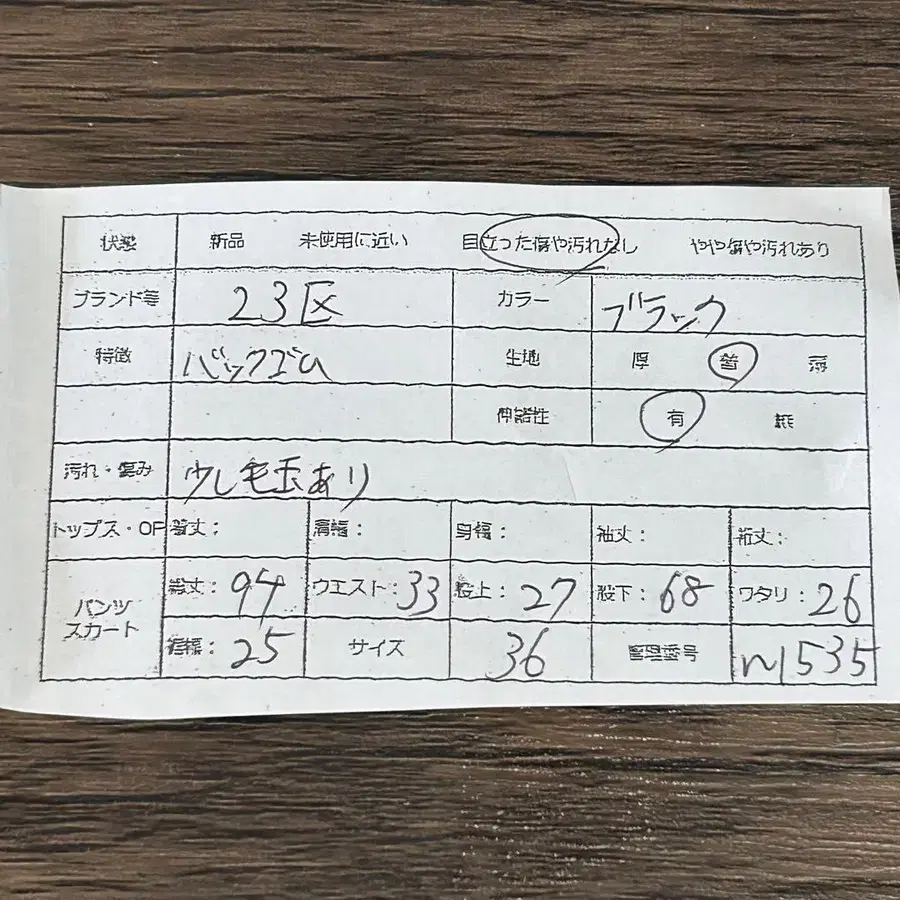 状態 新品 未使用に近い 目立った傷や汚れなし やや傷や汚れあり
ブランド等 23区 カラー ブラック
特徴 バックゴム 生地 厚 普 薄
伸縮性 有 無
汚れ・傷み 少し毛玉あり
トップス・OP 着丈: 肩幅: 身幅: 袖丈: 裄丈:
パンツ スカート 総丈:94 ウエスト:33 股上:27 股下:68 ワタリ:26
裾幅:25 サイズ 36 管理番号 n1535